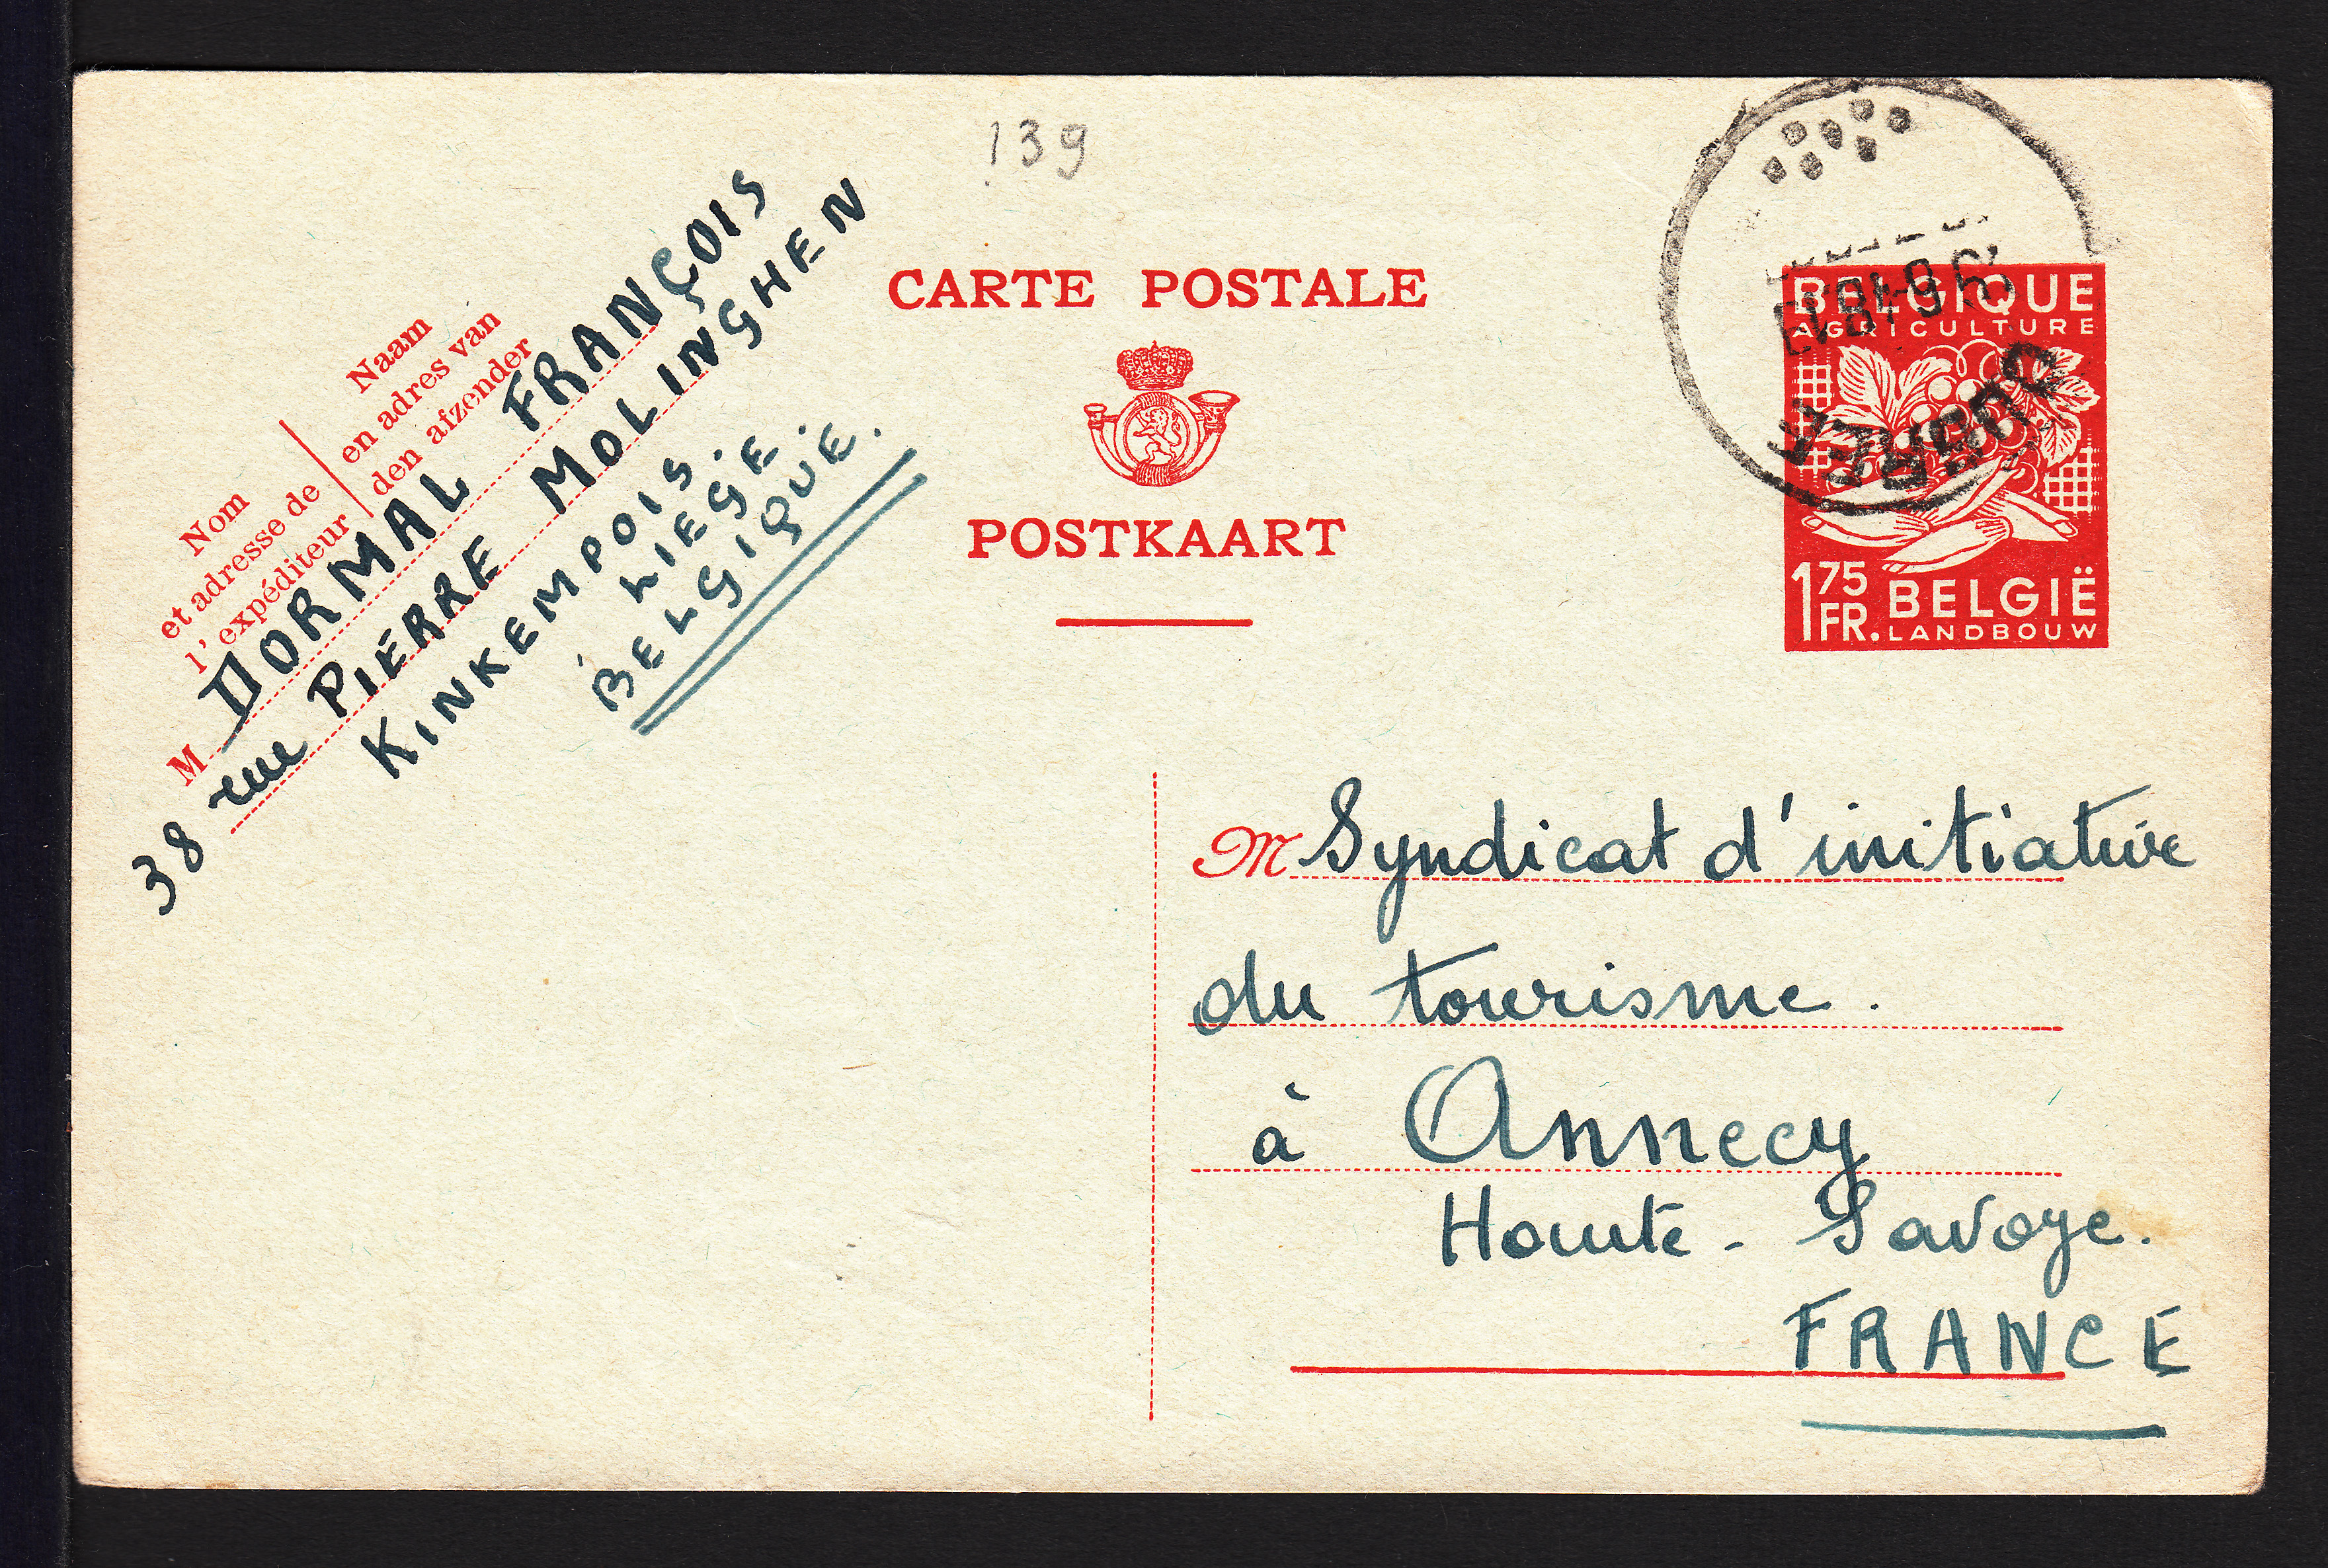 139
CARTE POSTALE
POSTKAART
Naam
en adres van
den afzender
Nom
et adresse de
l'expéditeur
M DORMAL FRANÇOIS
38 rue PIERRE MOLINGHEN
KINKEMPOIS.
LIEGE.
BELGIQUE.
BELGIQUE
AGRICULTURE
1 75 FR. BELGIË
LANDBOUW
M Syndicat d'initiative
du tourisme.
à Annecy
Haute-Savoye.
FRANCE